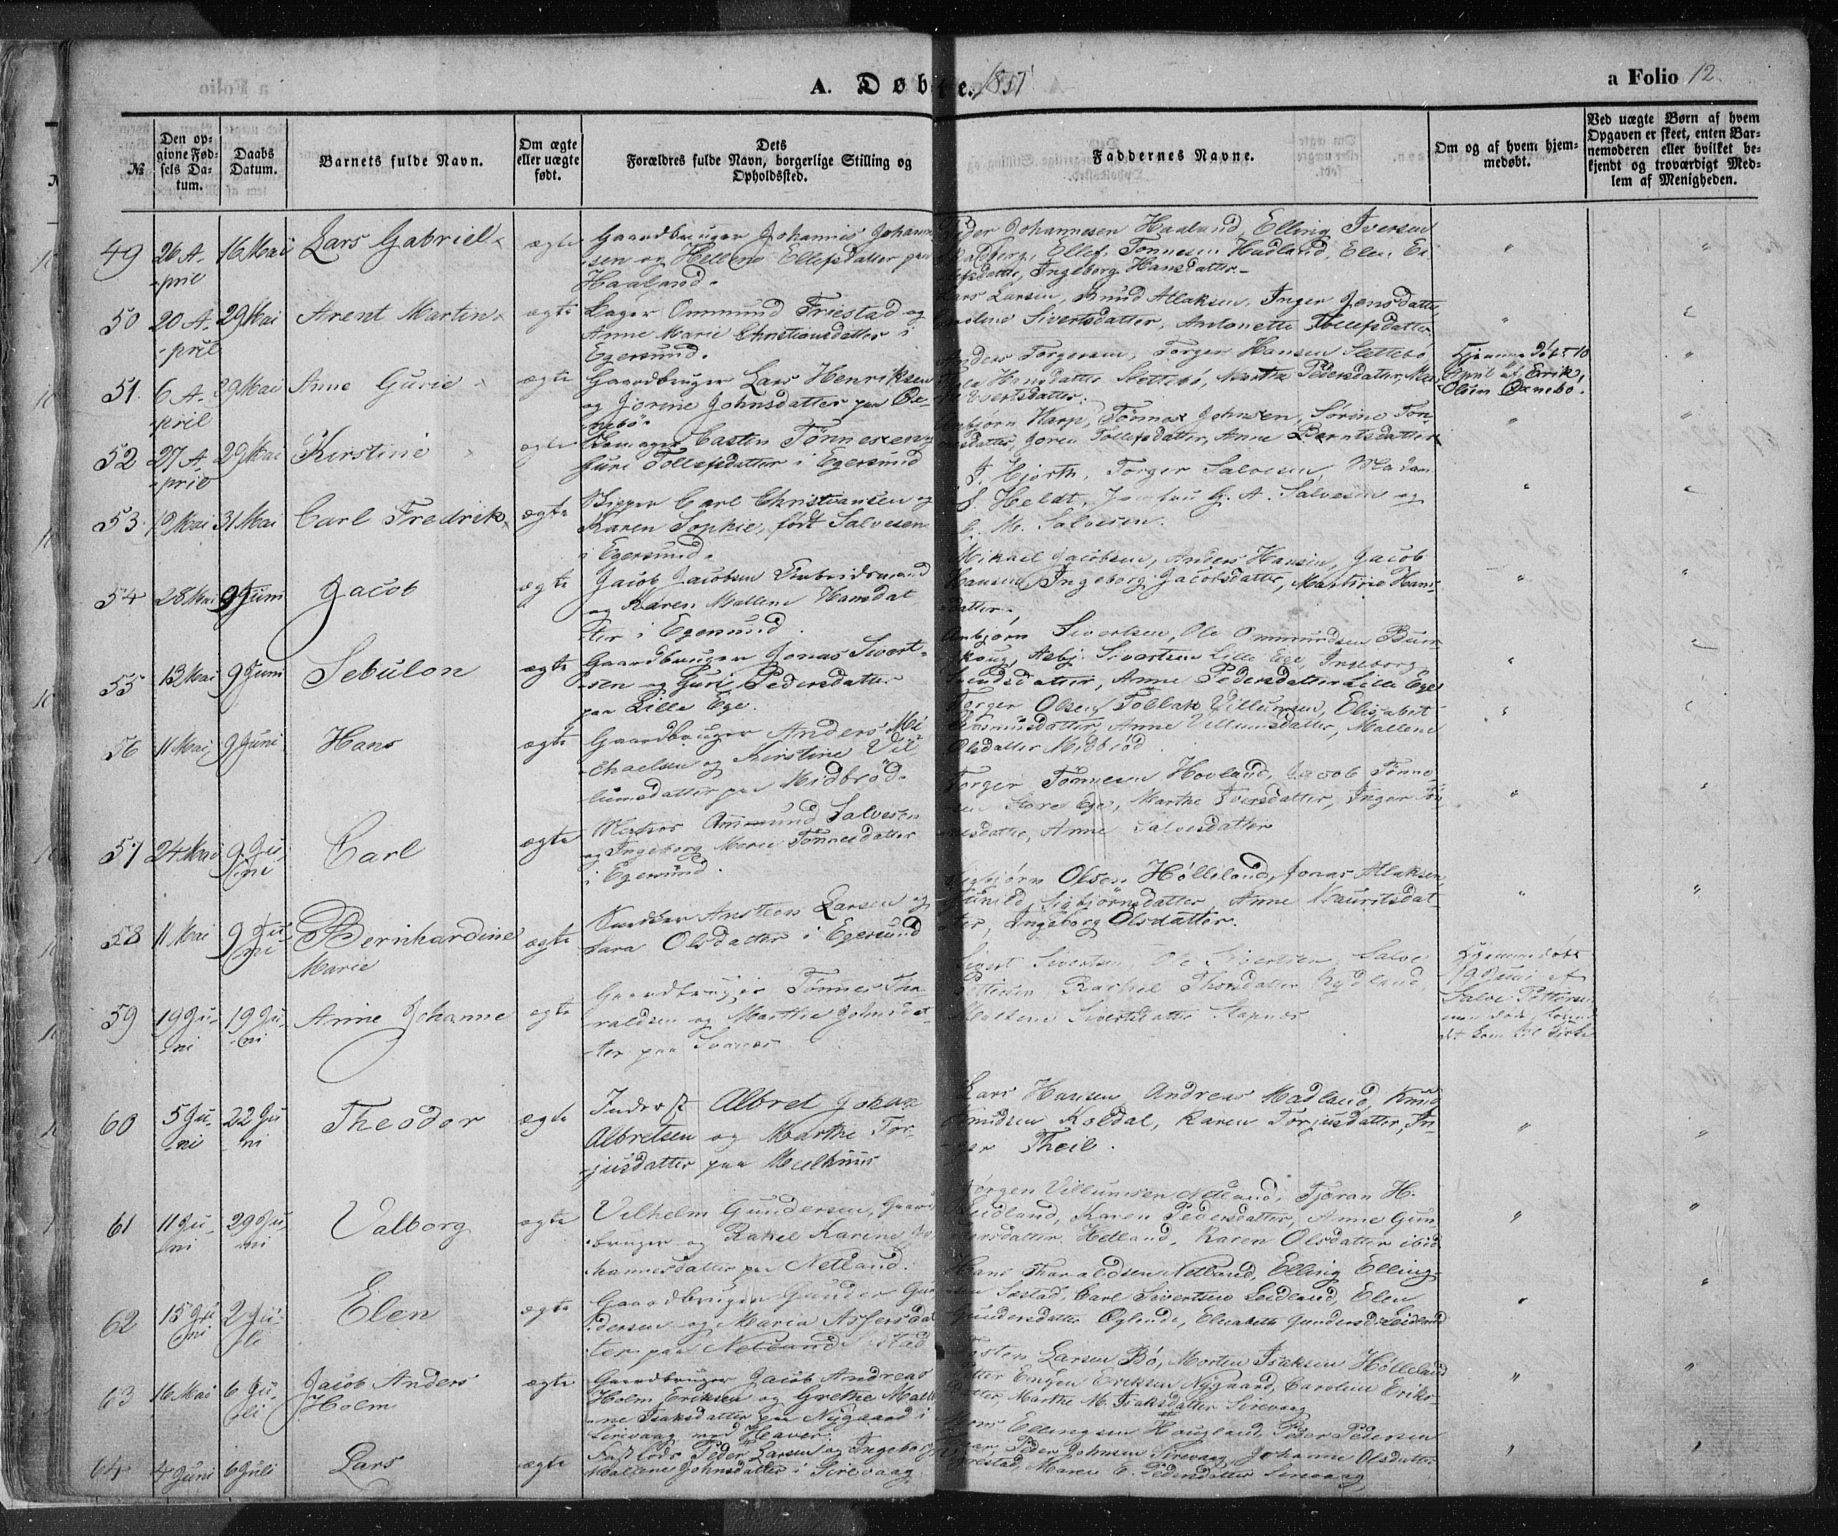 A. Døbte. 1851
a Folio 12.
№
Den opgivne Fødsels Datum.
Daabs Datum.
Barnets fulde Navn.
Om ægte eller uægte født.
Dets Forældres fulde Navn, borgerlige Stilling og Opholdssted.
Faddernes Navne.
Om og af hvem hjemmedøbt.
Ved uægte Børn af hvem Opgaven er skeet, enten Barnemoderen eller hvilket bekjendt og troværdigt Medlem af Menigheden.
49 26 A-pril 16 Mai Lars Gabriel ægte
Gaardbruger Johannes Johann
sen og Hellene Ellefsdatter paa
Haaland.
Peder Johannesen Haaland, Elling Iversen
Ellef Tønnesen Hadland, Elen El
lefsdatter, Ingeborg Hansdatter.
50 20 A-pril 29 Mai Arent Martin ægte
Ommund Friestad og
Anne Marie Christiansdatter i
Egersund.
Lars Larsen, Knud Atlaksen, Inger Jensdatter
Sivertsdatter, Antonette Tollefsdatter
51. 6 A-pril 29 Mai Anne Gurie ægte
Gaardbruger Lars Henriksen
og Jorine Johnsdatter paa Øx-
nebø.
Anders Torgersen, Torger Hansen Slettebø
Hansdatter Slettebø, Martha Pedersdatter,
Evertsdatter.
Hjemmedøbt 10
April af Erik
Olsen Øxnebø.
52 27 A-pril 29 Mai Kirstine ægte
Casten Tønnesen og
Guri Tollefsdatter i Egersund
Asbjørn Harp, Tønnes Johnsen, Sørine Tøn-
nesdatter, Joren Tollefsdatter, Anne Berntsdatter
53 19 Mai 31 Mai Carl Fredrik ægte
Skipper Carl Christiansen og
Karen Sophie, født Salvesen
i Egersund.
J. Hjorth, Torger Salvesen, Madam
S. Heldt, Jomfru G. A. Salvesen og
C. M. Salvesen.
54 28 Mai 9 Juni Jacob ægte
Jacob Jacobsen Arbeidsmand
og Karen Mallene Hansdat
ter i Egersund.
Mikael Jacobsen, Anders Hansen, Jacob
Hansen, Ingeborg Jacobsdatter, Martine Hans-
datter.
55 13 Mai 9 Juni Sebulon ægte
Gaardbruger Jonas Sivert-
sen og Guri Pedersdatter
paa Lille Ege.
Asbjørn Sivertsen, Ole Ommundsen Bur-
koug, Asbj. Sivertsen Lille Ege, Ingeborg
datter, Anne Pedersdatter Lille Ege
56 11 Mai 9 Juni Hans ægte
Gaardbruger Anders Mi-
chaelsen og Kirstine Vil-
lumsdatter paa Midbrød.
Torger Olsen, Tollak Villumsen, Elisabet
Rasmusdatter, Anne Villumsdatter, Mallene
Olsdatter Midbrød
57 24 Mai 9 Juni Carl ægte
Ommund Salvesen
og Ingeborg Marie Tønnesdatter
i Egersund.
Torger Tønnesen Hovland, Jacob Tønne-
sen Store Ege, Marthe Iversdatter, Inger Tøn
nesdatter, Anne Salvesdatter
58 11 Mai 9 Juni Bernhardine Marie ægte
Snedker Ansteen Larsen og
Sara Olsdatter i Egersund
Sigbjørn Olsen Hølleland, Jonas Atlaksen
Gunild Sigbjørnsdatter, Anne Mauritsdat-
ter, Ingeborg Olsdatter.
59 19 Juni 19 Juni Anne Johanne ægte
Gaardbruger Tønnes Tha-
raldsen og Marthe Johnsdat-
ter paa Svanes
Sivert Sivertsen, Ole Sivertsen, Salve
Pettersen, Rachel Thorsdatter Rydland,
Mallene Sivertsdatter Stapnes
Hjemmedøbt
19 Juni af
Salve Pettersen
men død, forend
det kom til Kirke
60 5 Juni 22 Juni Theodor ægte
Inderst Albret Johan
Albretsen og Marthe Tor-
jusdatter paa Mælhuus
Lars Hansen, Andreas Madland, Knud
Knudsen Koldal, Karen Torjusdatter, In-
ger Theil.
61 11 Juni 29 Juni Valborg ægte
Vilhelm Gundersen, Gaard
bruger og Rakel Karine Jo-
hannesdatter paa Netland.
Jørgen Villumsen Netland, Tjøran H.
Leidland, Karen Pedersdatter, Anne Gun-
dersdatter, Helland, Karen Olsdatter ibid
62 15 Juni 2 Juli Elen ægte
Gaardbruger Gunder Gun
dersen og Maria Assersdat
ter paa Netland
Hans Tharaldsen Netland, Elling Elling-
sen Sæstad, Carl Sivertsen Leidland, Elen
Gundersdatter Øglende, Elisabeth Gundersd. Leidland
63 16 Mai 6 Juli Jacob Anders Holm ægte
Gaardbruger Jacob Andreas
Holm Eriksen og Grethe Mall
ene Isaksdatter paa Nygaard i
Sirevaag med Haver.
Larsen Bø, Morten Isaksen Hølleland
Eriksen Nygaard, Caroline Eriks-
datter, Marthe M. Isaksdatter Sirevaag
64 4 Juni 6 Juli Lars ægte
Fastlods Peder Larsen og Ingeborg
Mallene Johnsdatter i Sirevaag
Mons Ellingsen Hougland, Peder Pedersen
Peder Johnsen Sirevaag, Johanne Olsdatter
Maren E. Pedersdatter Sirevaag